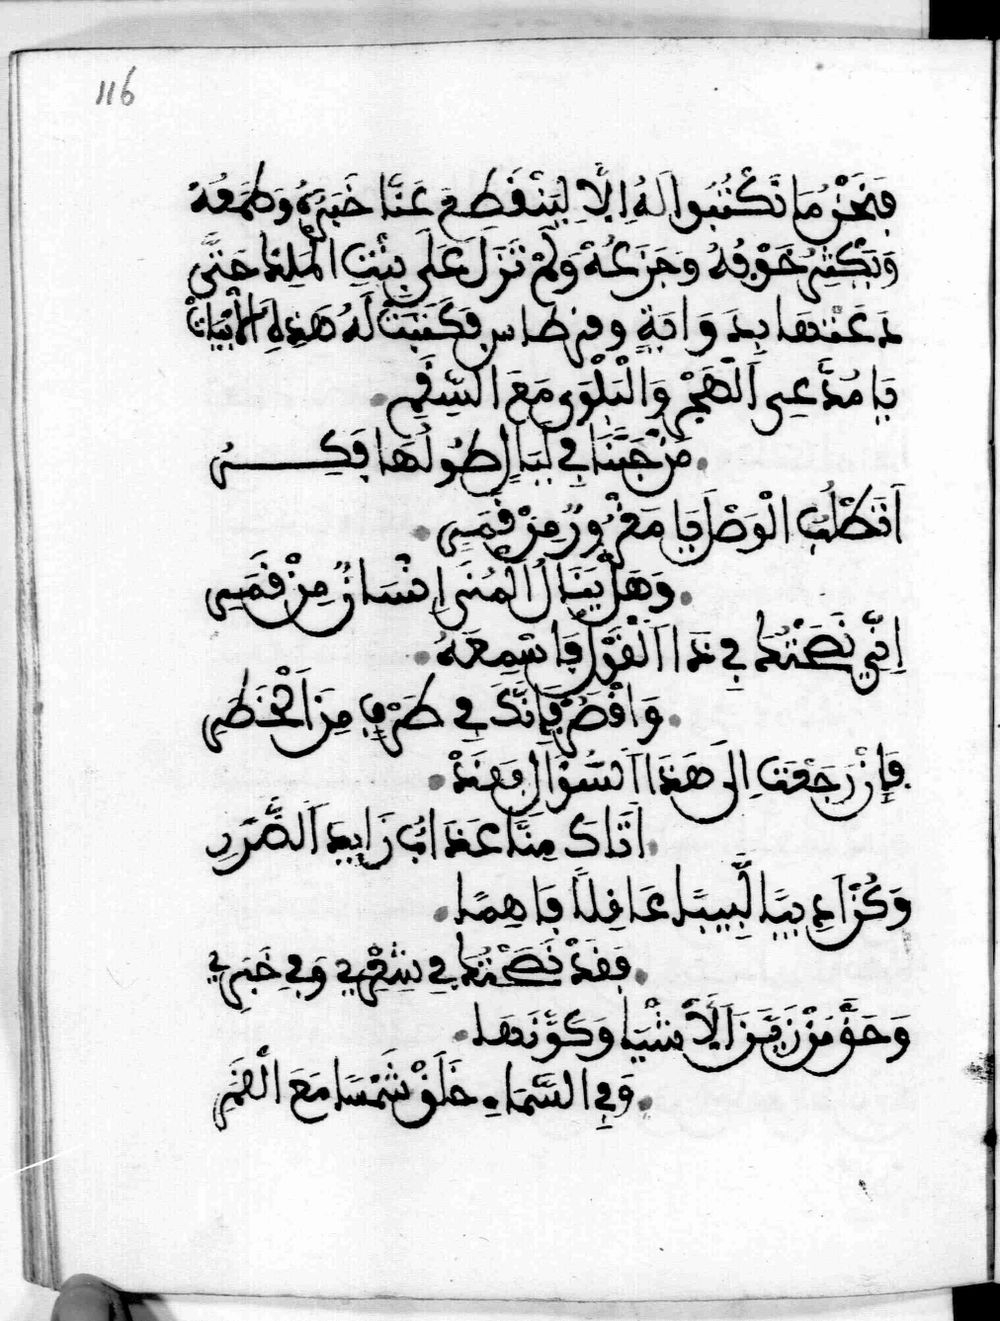 116
فَنَحْنُ مَا نَكْتُبُوا لَهُ إِلَّا لِيَنْقَطِعَ عَنَّا خَبَرُهُ وَطَمَعُهُ
وَيَكْثِرُ خَوْفُهُ وَجَزَعُهُ وَلَمْ تَزَلْ عَلَى بِنْتِ الْمَلِكِ حَتَّى
دَعَتْهَا بِدَوَايَةٍ وَقِرْطَاسٍ فَكَتَبَتْ لَهُ هَذِهِ الْأَبْيَاتْ
يَا مُدَّعِي الْهَجْرِ وَالْبَلْوَى مَعَ السَّقَمِ
مَنْ جَنَّنَا فِي لَيَالٍ طُولُهَا فِكِرُ
أَتَطْلُبُ الْوَصْلَ يَا مَغْرُورُ مِنْ قَمَرِ
وَهَلْ يَنَالُ الْمُنَى إِنْسَانٌ مِنْ قَمَرِ
إِنِّي نَصَحْتُكَ فِي ذَا الْقَوْلِ فَاسْمَعْهُ
وَاقْصُرْ فَإِنَّكَ فِي طَرَفٍ مِنَ الْخَطَرِ
فَإِنْ رَجَعْتَ إِلَى هَذَا السُّؤَالِ فَقَدْ
أَتَاكَ مِنَّا عَذَابٌ زَايِدُ الضَّرَرِ
وَكُنْ أَدِيبًا لَبِيبًا عَاقِلًا فَاهِمًا
فَقَدْ نَصَحْتُكَ فِي شِعْرِي وَفِي خَبَرِي
وَحَقِّ مَنْ زَيَّنَ الْأَشْيَا وَكَوَّنَهَا
وَفِي السَّمَاءِ خَلَقْ شَمْسًا مَعَ الْقَمَرِ